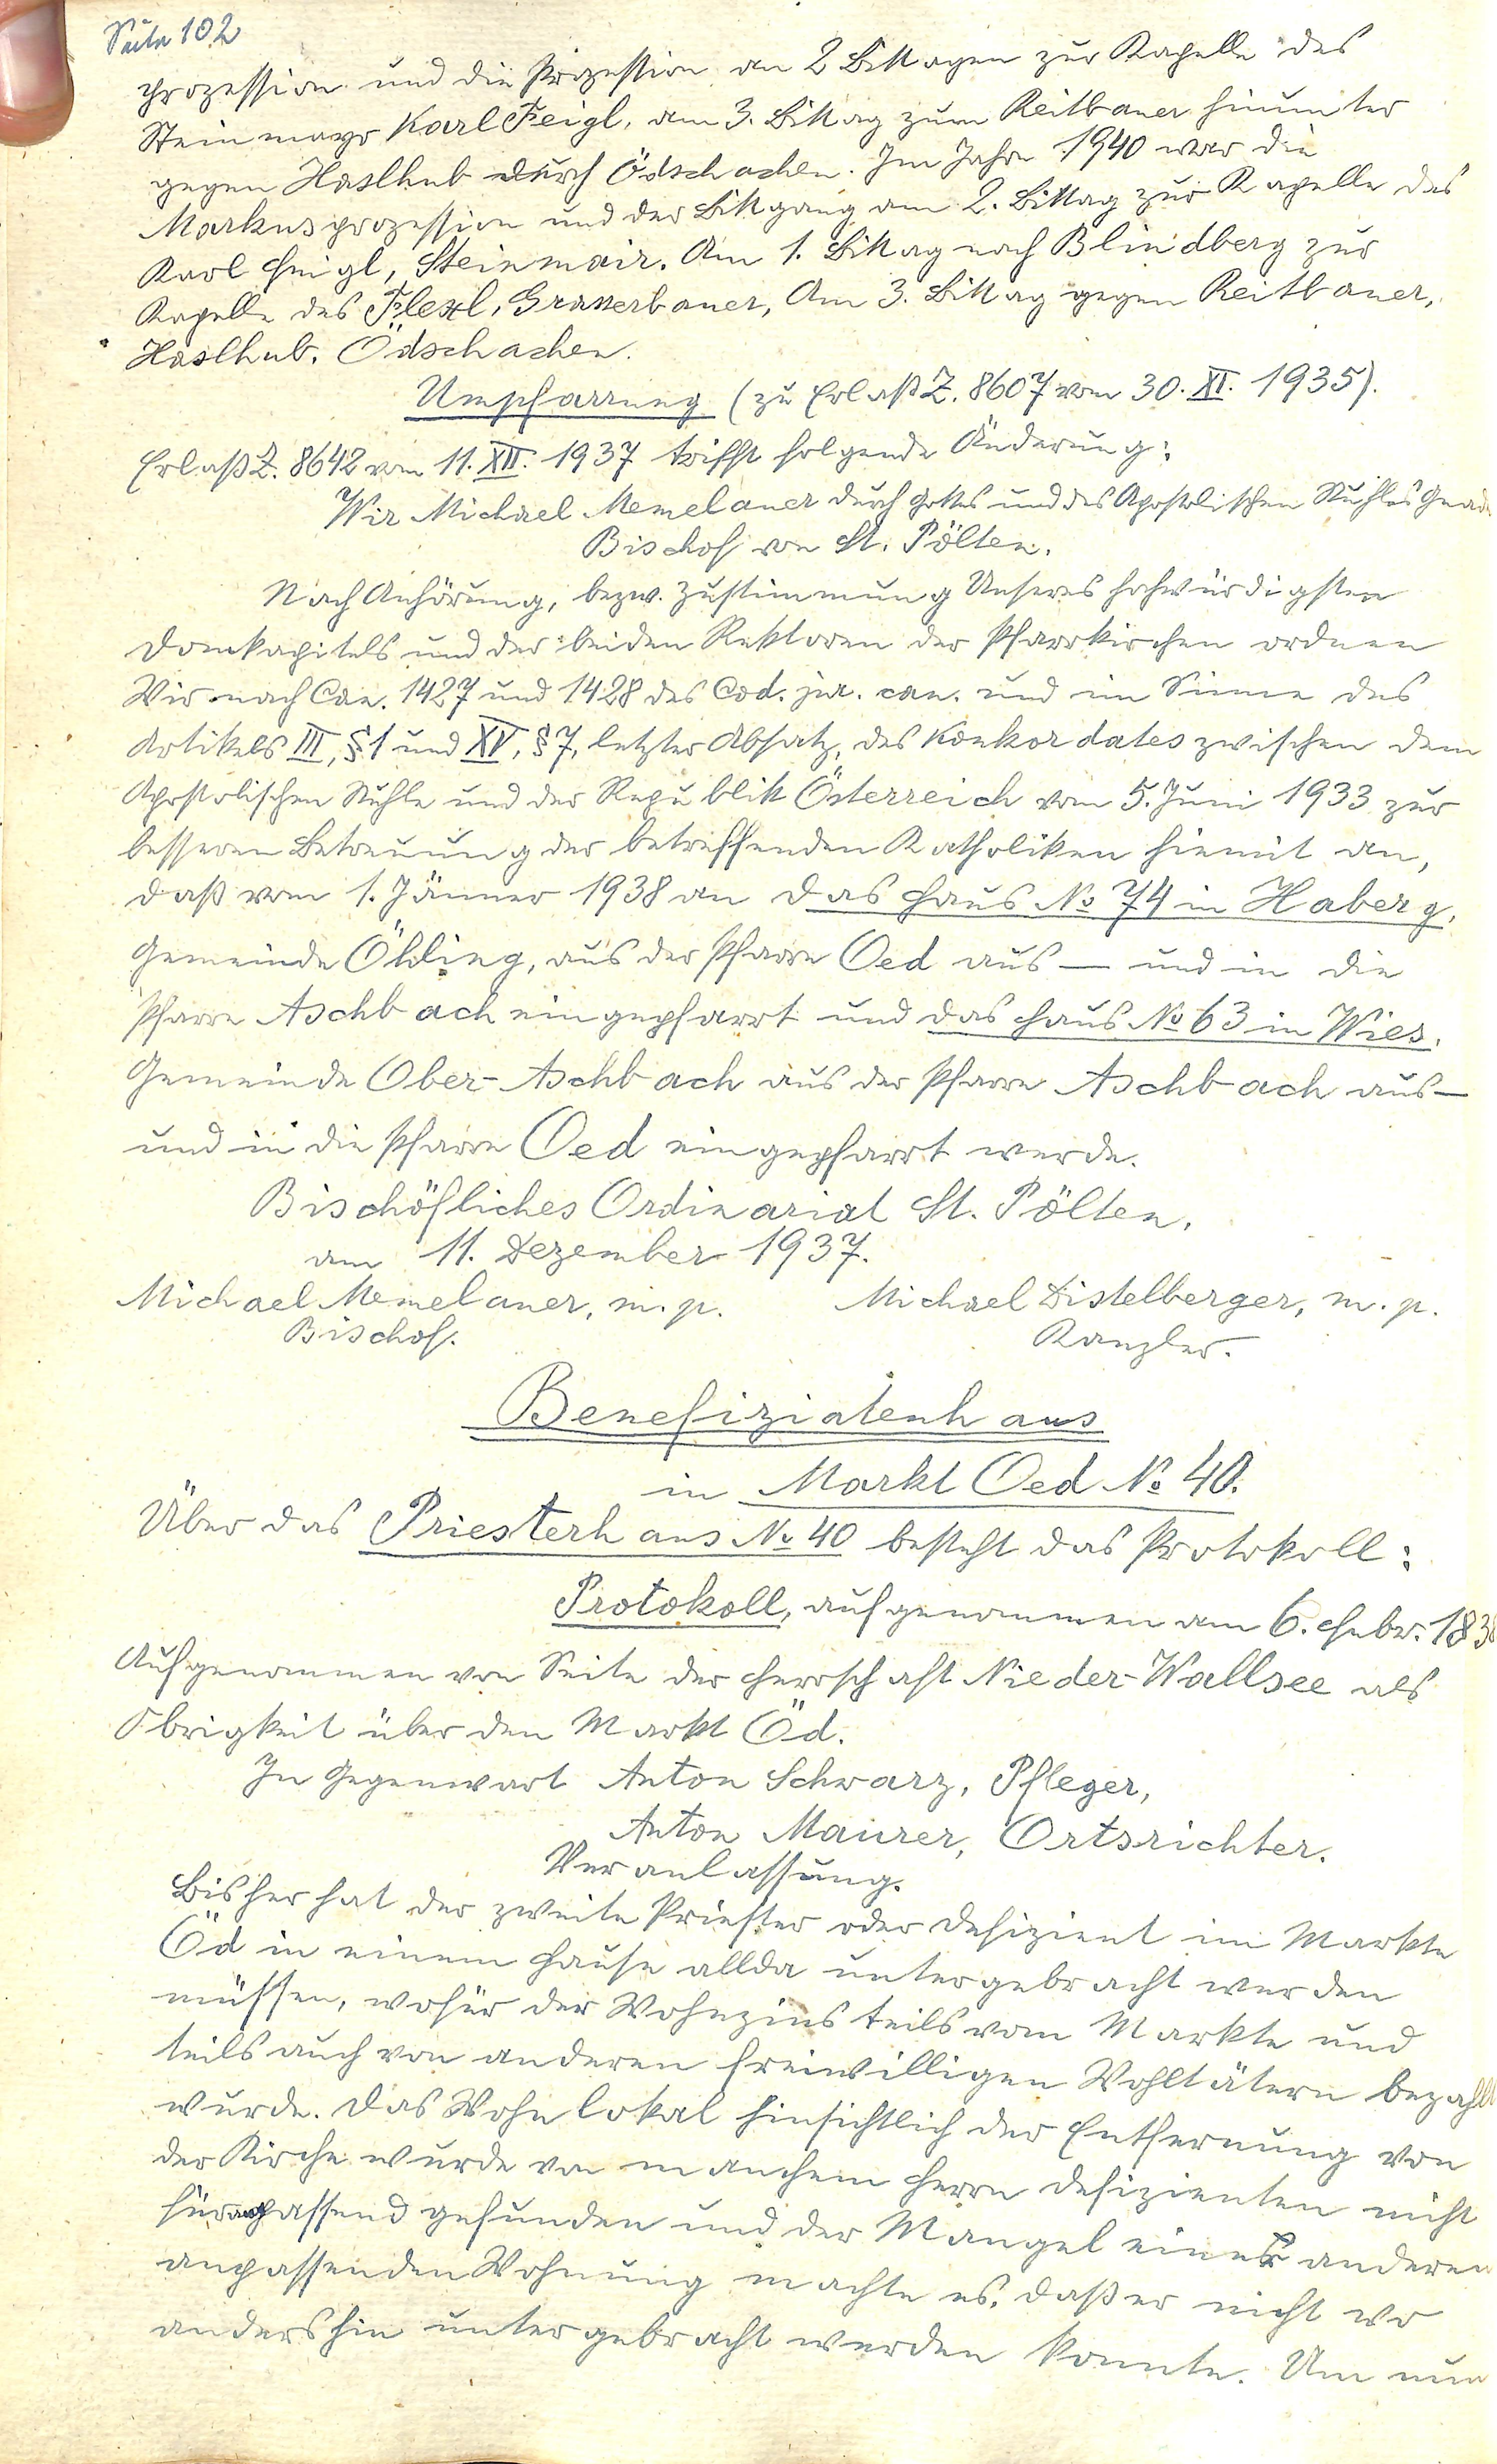 Seite 102
prozession und die Prozession an 2 Bittagen zur Kapelle des
Steinmayr Karl Feigl, am 3. Bittag zum Reitbauer hinunter
gegen Haslhub durch Ödschachen. Im Jahre 1940 war die
Markusprozession und der Bittgang am 2. Bittag zur Kapelle des
Karl Feigl, Steinmair. Am 1. Bittag nach Blindberg zur
Kapelle des Flexl, Graserbauer, Am 3. Bittag gegen Reitbauer,
Haslhub, Ödschachen.
Umpfarrung (zu Erlaß Z. 8607 vom 30. XI. 1935).
Erlaß Z. 8642 vom 11. XII. 1937 trifft folgende Änderung:
Wir Michael Memelauer durch Gottes und des Apostolischen Stuhles Gnade
Bischof von St. Pölten.
Nach Anhörung, bezw. Zustimmung Unseres hochwürdigsten
Domkapitels und der beiden Rektoren der Pfarrkirchen ordnen
Wir nach Can. 1427 und 1428 des Cod. jur. can. und im Sinne des
Artikels III, §1 und XV, §7, letzter Absatz, des Konkordates zwischen dem
Apostolischen Stuhle und der Republik Österreich vom 5. Juni 1933 zur
besseren Betreuung der betreffenden Katholiken hiemit an,
daß vom 1. Jänner 1938 an das Haus No 74 in Haberg,
Gemeinde Öhling, aus der Pfarre Oed aus — und in die
Pfarre Aschbach eingepfarrt und das Haus No 63 in Wies,
Gemeinde Ober-Aschbach aus der Pfarre Aschbach aus—
und in die Pfarre Oed eingepfarrt werde.
Bischöfliches Ordinariat St. Pölten,
am 11. Dezember 1937.
Michael Memelauer, m. p. Michael Distelberger, m. p.
Bischof. Kanzler.
Benefiziatenhaus
in Markt Oed No 40.
Über das Priesterhaus No 40 besteht das Protokoll:
Protokoll, aufgenommen am 6. Febr. 183
Aufgenommen von Seite der Herrschaft Nieder-Wallsee als
Obrigkeit über den Markt Öd.
In Gegenwart Anton Schwarz, Pfleger,
Anton Maurer, Ortsrichter.
Veranlassung.
Bisher hat der zweite Priester oder Defizient im Markte
Öd in einem Hause allda untergebracht werden
müssen, wofür der Wohnzins teils vom Markte und
teils auch von anderen freiwilligen Wohltätern bezahlt
wurde. Das Wohnlokal hinsichtlich der Entfernung von
der Kirche wurde von manchem Herrn Defizienten nicht
für anpassend gefunden und der Mangel einer anderen
anpassenden Wohnung machte es, daß er nicht wo
anders hin untergebracht werden konnte. Um nun